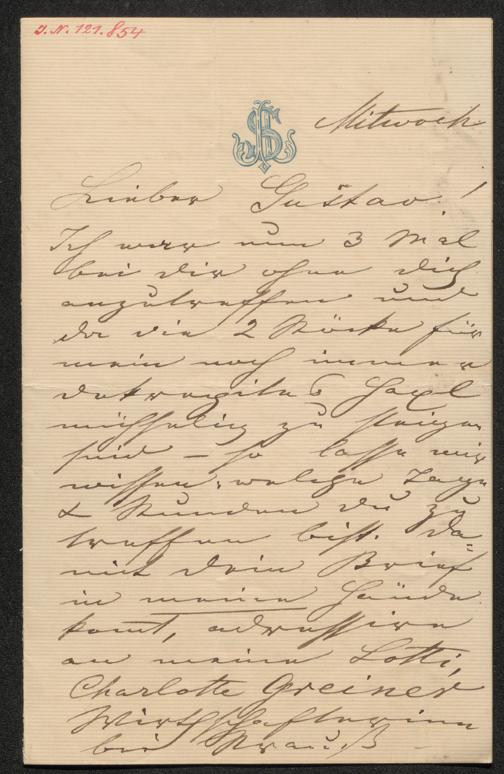 J. N. 121.854
Mitwoch
Lieber Gustav!
Ich war nun 3 Mal
bei dir ohne dich
anzutreffen und
da die 2 Stöcke für
mein noch immer
dekrepites
mühselig zu steigen
sind – so lasse mich
wissen, welche Tage
& Stunden du zu
treffen bist. Da=
mit dein Brief
in meine Hände
komt, adressire
an meine Lotti,
Charlotte Greiner
Wirthschafterinn
bei Strauß